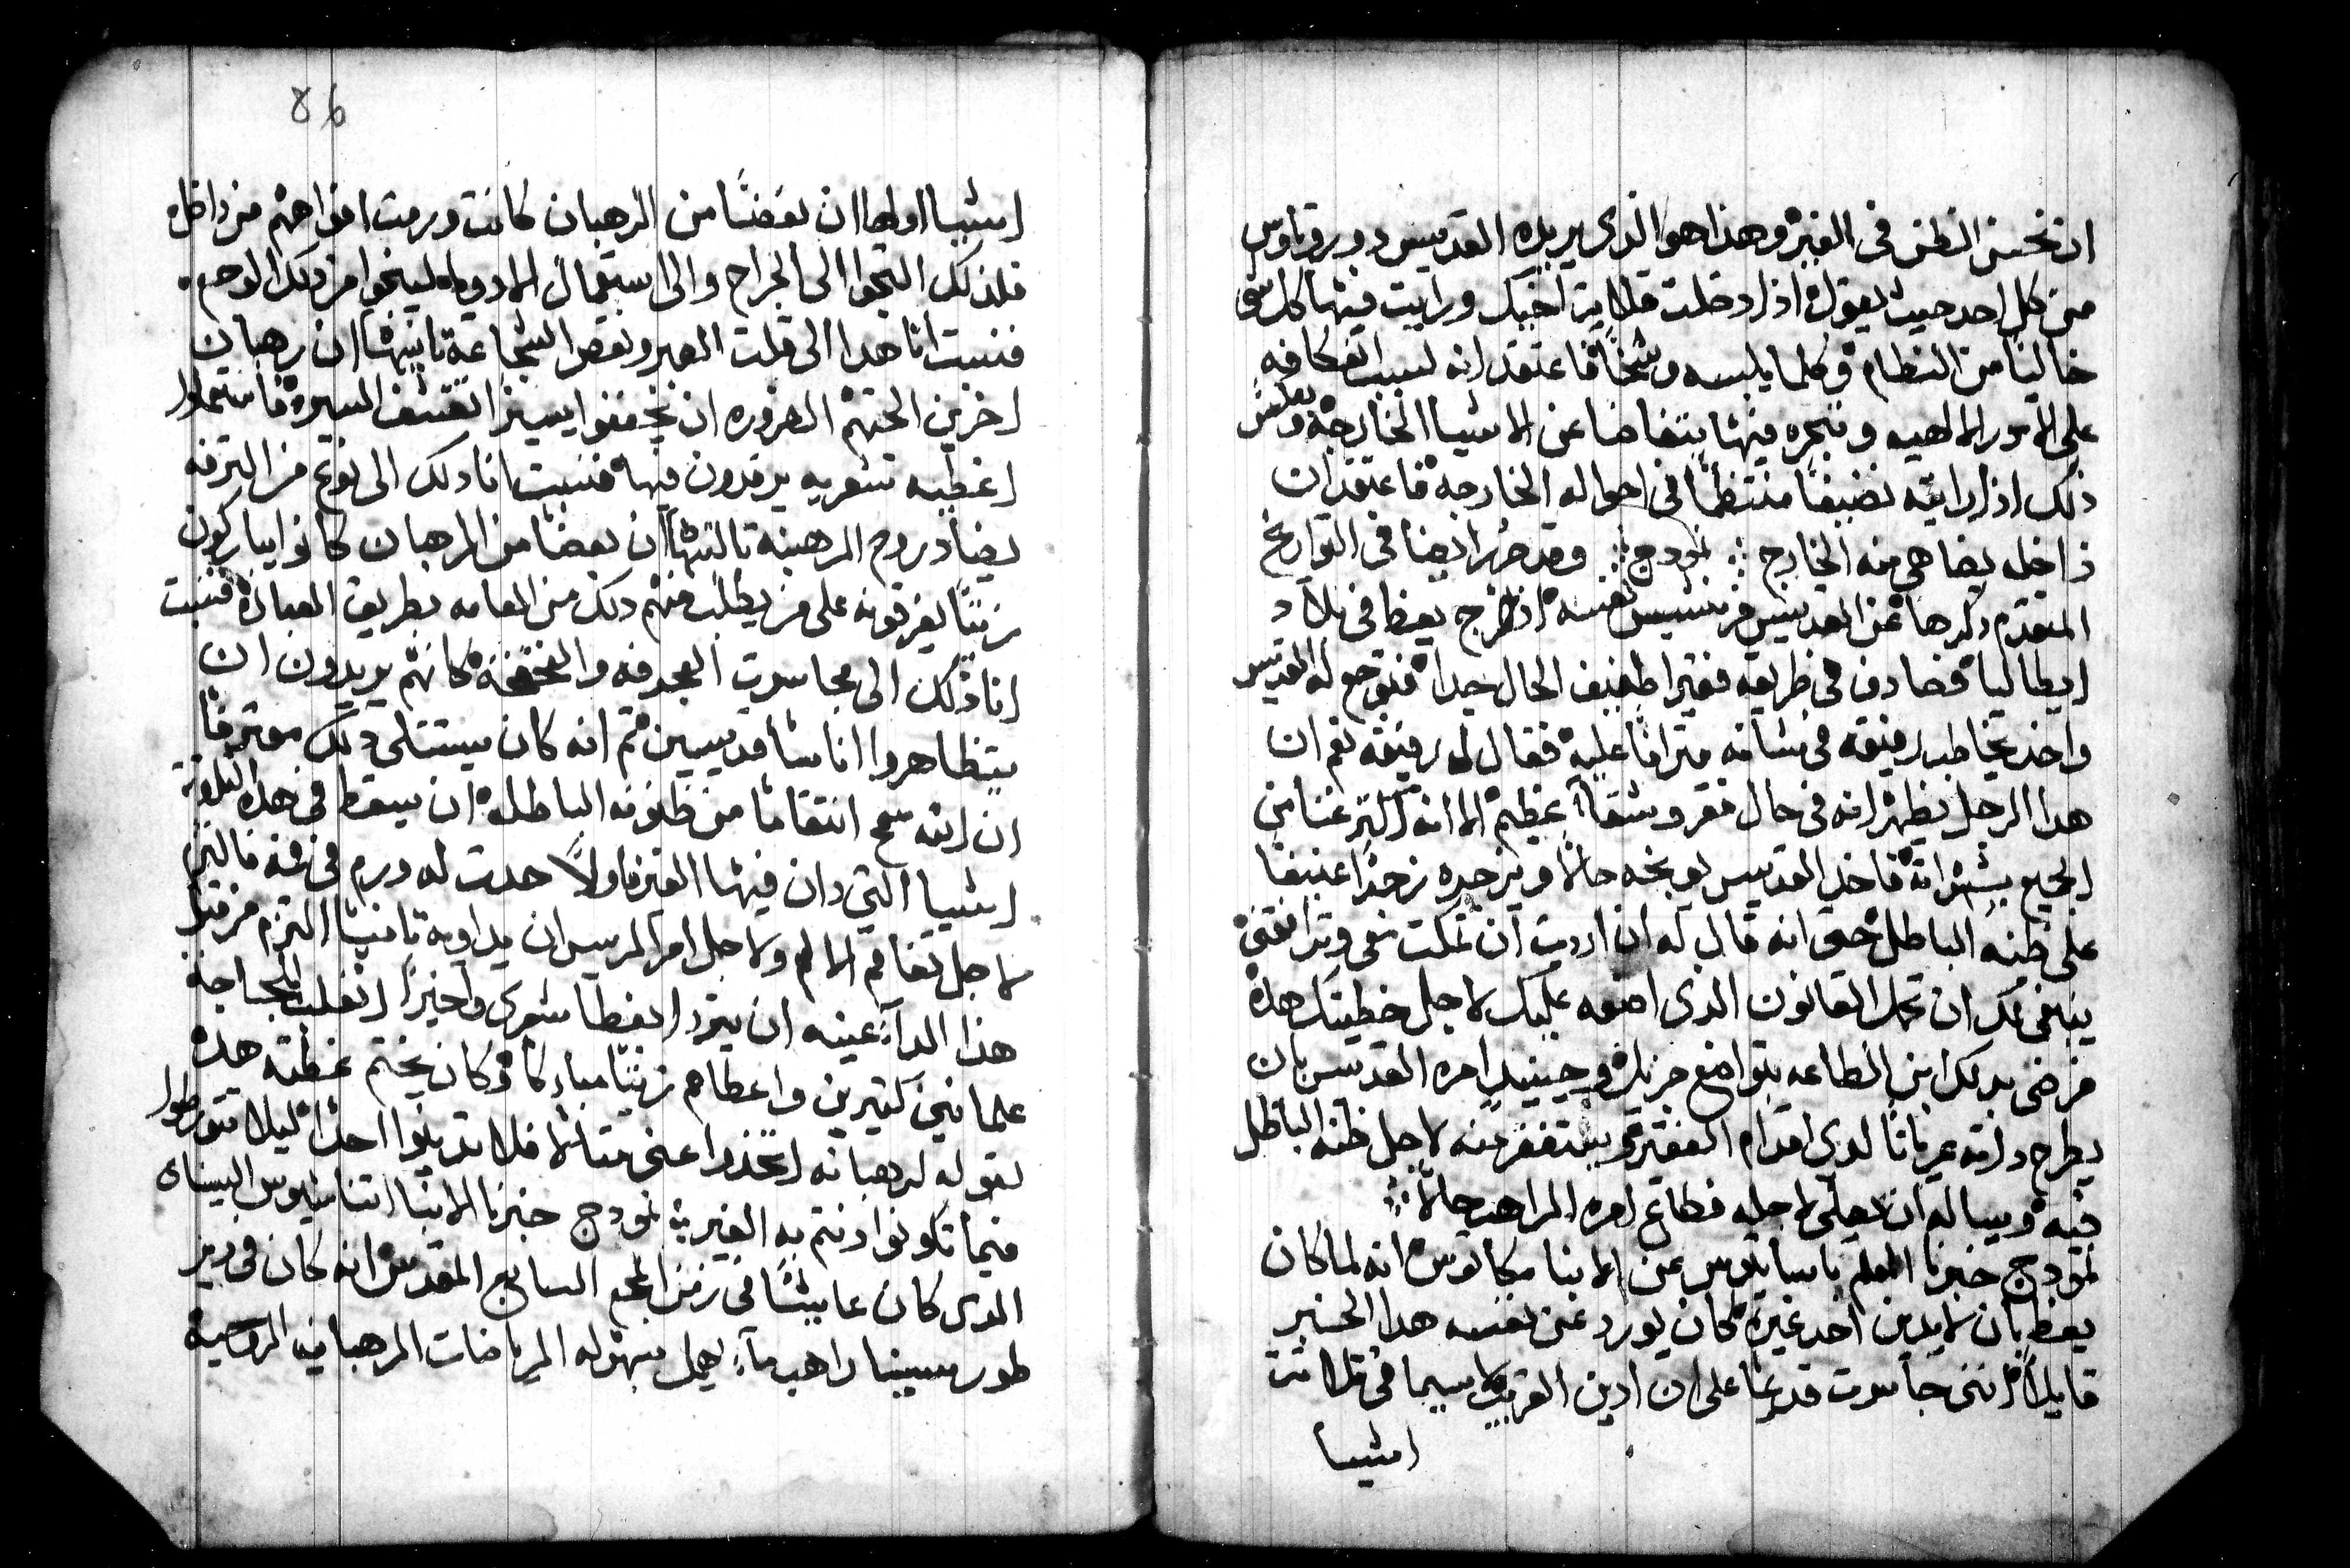 ان نحسن الظن فى الغير وهذا هو الذى يريده القديس دوروتاوس
من كل احد حيث يقول اذا دخلت قلاية اخيك ورايت فيها كل شى
خاليا من النظام وكلما يلبسه وسخا فاعتقد انه لسبب انعكافه
على الامور الالهيه وفكره فيها يتغاضا عن الاشيا الخارجة وبعكس
ذلك اذا رايته نضيفا منتظما فى احواله الخارجة فاعتقد ان
داخله يضاهى منه الخارج نمودج وقد حرر ايضا فى التواريخ
المتقدم ذكرها عن القديس فرنسيس نفسه اذ خرج يعظ فى بلاد
ايطاليا فصادف فى طريقه فقيرا ضعيف الحال جدا فتوجع له القديس
واخذ يخاطب رفيقه فى شانه مترافا عليه فقال له رفيقه نعم ان
هدا الرجل يظهر انه فى حال فقر وشقا عظيم الا انه اكتر غنا من
الجميع بشهواته فاخذ القديس يوبخه حالا ويزجره زجرا عنيفا
على ظنه الباطل حتى انه قال له ان اردت ان تمكت معى وترافقنى
ينبغى لك ان تكمل القانون الذى اضعه عليك لاجل خطيتك هذه
فرضى بدلك ابن الطاعه بتواضع جزيل وحينيد امره القديس بان
يطرح داته عريانا لدى اقدام الفقير ويستغفر منه لاجل ظنه الباطل
فيه ويساله ان يصلى لاجله فطاع امره الراهب حالا
نمودج خبرنا المعلم باسيانوس عن الابنا مكاتوس انه لما كان
يعظ بان لا يدين احد غيره كان يورد عن نفسه هدا الخبر
قايلا اننى تجاسرت قديما على ان ادين القريب لاسيما فى تلاتة
اشيا
86
اشيا اولها ان بعضا من الرهبان كانت ورمت افواههم من داخل
فلذلك التجوا الى الجراح والى استعمال الادويه لينجوا من دلك الوجع
فنسبت انا هدا الى قلت الصبر ونقص الشجاعة تانيها ان رهبان
اخرين الجتهم الضروره ان يخففوا يسيرا تقشف السيرة فاستعملوا
اغطيه شعريه يرقدون فيها فنسبت انا دلك الى نوع من الترفه
يضاد روح الرهبنة تالتها ان بعضا من الرهبان كانوا يباركون
زيتا يفرقونه على من يطلب منهم دلك من العامه بطريق العبادة فنسبت
انا ذلك الى تجاسرت العجرفه والفخفخة كانهم يريدون ان
يتظاهروا اناسا قديسين ثم انه كان يستتلى دلك معترفا
ان الله سمح انتقاما من ظنونه الباطله ان يسقط فى هذه التلاتة
اشيا التى دان فيها الغير فاولا حدت له ورم فى فمه فالتزم
لاجل تفاقم الالم ولاجل امر الريس ان يداويه تانيا التزم من قبل
هذا الدا عينه ان يتردا بغطا شعرى واخيرا انغلب للجاجة
علمانين كتيرين واعطاهم زيتا مباركا وكان يختم عظته هده
بقوله لرهبانه اتخذوا عنى متالا فلا تدينوا احدا ليلا تتورطوا
فيما تكونوا ادنتم به الغير نمودج خبرنا الابنا اتناسيوس السينائى
الدى كان عايشا فى زمن المجمع السابع المقدس انه كان فى دير
طور سينا راهب ما يهمل بسهوله الرياضات الرهبانيه الرسمية